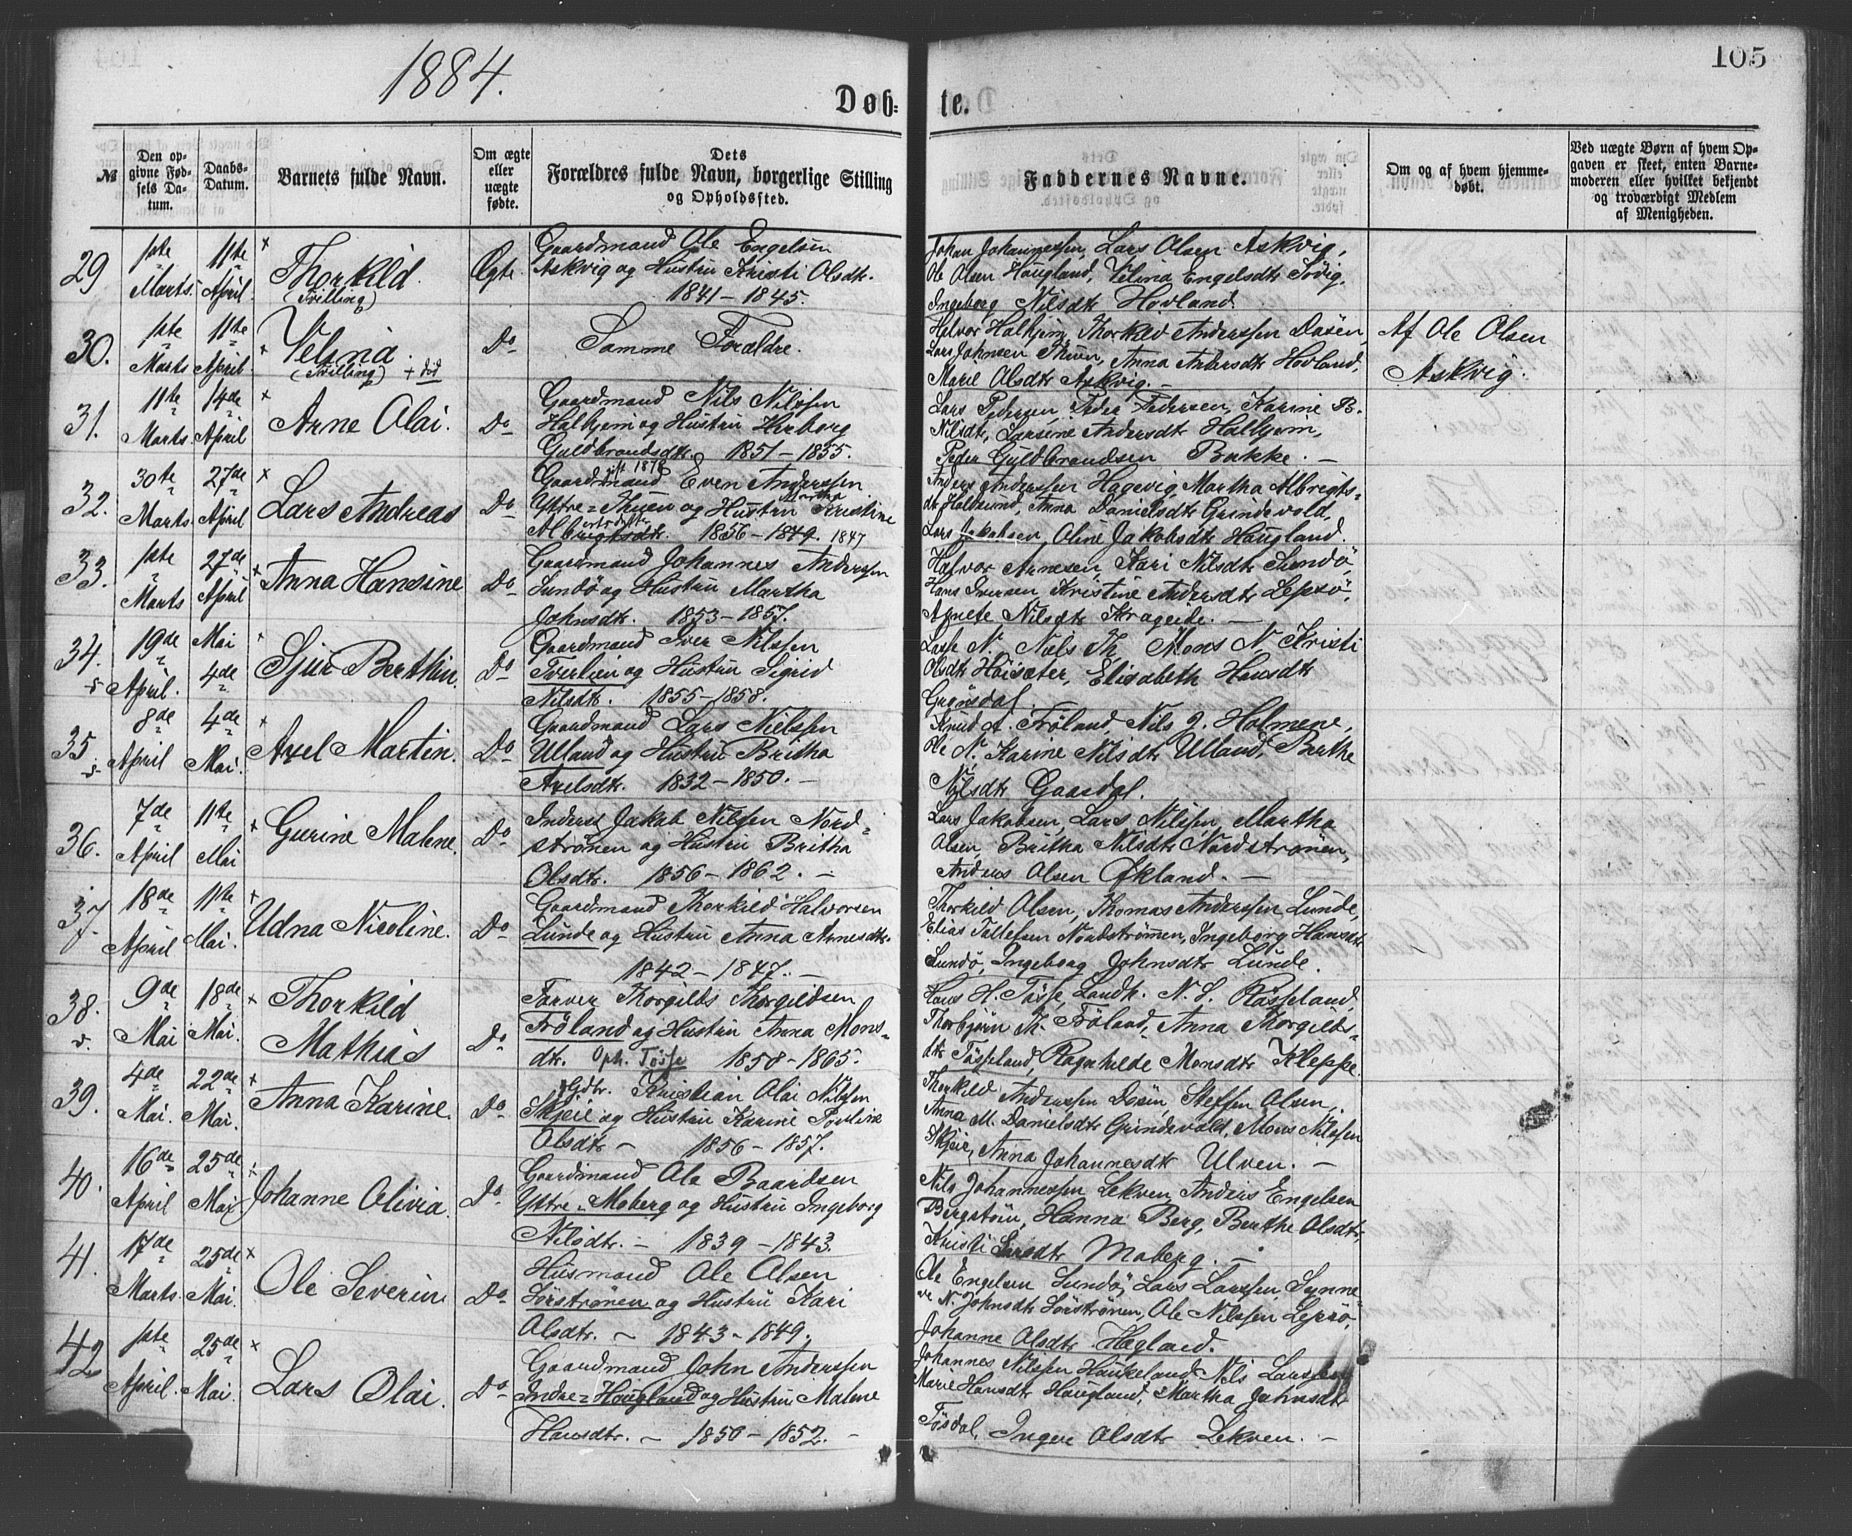 1884.
105
Døb-
te.
№
Den op-
givne Fød-
sels Da-
tum.
Daabs-
Datum.
Barnets fulde Navn.
Om ægte
eller
uægte
fødte.
Dets
Forældres fulde Navn, borgerlige Stilling
og Opholdssted.
Faddernes Navne.
Om og af hvem hjemme-
døbt.
Ved uægte Børn af hvem Op-
gaven er skeet, enten Barne-
moderen eller hvilket bekjendt
og troværdigt Medlem
af Menigheden.
29
1ste Marts.
11te April.
Thorkild
(Tvilling)
Ægte.
Gaardmand Ole Engelsen
Askvig og Hustru Kristi Olsdtr.
1841 - 1845.
Johan Johannessen, Lars Olsen Askvig,
Ole Olsen Haugland, Velina Engelsdtr Søvig,
Ingeborg Nilsdtr Hovland.
30.
1ste Marts
11te April.
Velina.
(Tvilling) + død
Do
Samme Forældre.
Helvor Halhjem, Thorkild Anderssen Døsen,
Lars Johnsen Thuen, Anna Andersdtr Hovland,
Marie Olsdtr Askvig. -
Af Ole Olsen
Askvig.
31.
11te Marts
14de April
Arne Olai.
Do
Gaardmand Nils Nilssen
Halhjem og Hustru Herborg
Guldbrandsdtr. 1851 - 1855.
Lars Pedersen, Peder Pedersen, Karine B.
Nilsdtr, Larsine Andersdtr Halhjem,
Peder Guldbrandsen Bakke. -
32.
30te Marts
27de April
Lars Andreas
Do
gift 1878
Gaardmand Even Anderssen
Yttre-Thuen og Hustru Martha Kristine
Albrigtsdtr. 1856 - 1849. 1847
Anders Anderssen Hagevig, Martha Albrigts-
dtr Halhjem, Anna Danielsdtr Grindevold,
Lars Jakobsen, Oline Jakobsdtr Haugland.
33.
1ste Marts
27de April
Anna Hansine
Do
Gaardmand Johannes Anderssen
Sundø og Hustru Martha
Johnsdtr. 1853 - 1857.
Halvor Arnesen, Kari Nilsdtr Sundø,
Hans Iversen, Kristine Andersdtr Lepsø,
Agnete Nilsdtr Krageide. -
34.
19de April.
Mai 4de
Sjur Berthin.
Do
Gaardmand Iver Nilssen
Tverlien og Hustru Sigrid
Nilsdtr. 1855 - 1858.
Lasse N. Nels Th. Mons N. Kristi
Olsdtr Høisæter, Elisabeth Hansdtr
Grønsdal.
35
8de April
4de Mai.
Axel Martin.
Do
Gaardmand Lars Nielssen
Ulland og Hustru Britha
Axelsdtr. 1832 - 1850. -
Knud A. Frøland, Nils J. Holmene,
Ole N. Karine Nilsdtr Ulland, Berthe
Nilsdtr Gaasdal.
36.
7de April
11te Mai
Gurine Malene.
Do
Inderst Jakob Nilsen Nord-
strønen og Hustru Britha
Olsdtr. 1856 - 1862. -
Lars Jakobsen, Lars Nilssen, Martha
Olsen, Britha Nilsdtr Nordstrønen,
Anders Olsen Økland. -
37.
18de April
11te Mai.
Udna Nicoline.
Do
Gaardmand Thorkild Halvorsen
Lunde og Hustru Anna Arnesdtr.
1842 - 1847. -
Thorkild Olsen, Thomas Anderssen Lunde,
Elias Tellefsen Nordstrønen, Ingeborg Hansdtr
Sundø, Ingeborg Johnsdtr Lunde.
38.
9de Mai
18de Mai.
Thorkild
Mathias
Do
Farver Thorgilds Thorgildsen
Frøland og Hustru Anna Mons-
dtr. Oph. Tøsse 1858 - 1865.
Hans H. Tøsse Landh. N. L. Røsseland,
Thorbjørn Th. Frøland, Anna Thorgilds-
dtr Tøsseland, Ragnhilde Monsdtr Kleppe.
39.
4de Mai.
22de Mai.
Anna Karine.
Do
Gdbr. Kristian Olai Nilsen
Skjeie og Hustru Karine Pouline
Olsdtr - 1856 - 1857.
Thorkild Anderssen Døsen, Steffen Olsen,
Anna M. Danielsdtr Grindevold, Mons Nilssen
Skjeie, Anna Johannesdtr Ulven. -
40.
16de April
25de Mai
Johanne Olivia.
Do
Gaardmand Ole Baardsen
Yttre-Moberg og Hustru Ingeborg
Nilsdtr. - 1839 - 1843.
Nils Johannessen Lekven, Anders Engelsen
Bergstøen, Hanna Berg, Berthe Olsdtr,
Kristi Larsdtr Moberg. -
41.
17de Marts.
25de Mai.
Ole Severin.
Do
Husmand Ole Olsen
Sørstrønen og Hustru Kari
Olsdtr. - 1843 - 1849.
Ole Engelsen Sundø, Lars Larssen, Synne-
ve N. Johnsdtr Sørstrønen, Ole Nilssen Lepsø,
Johanne Olsdtr Hegland.
42
1ste April.
25de Mai.
Lars Olai.
Do
Gaardmand John Anderssen
Indre-Hougland og Hustru Malene
Hansdtr. - 1850 - 1852. -
Johannes Nilssen Haukeland, Nils Larssen,
Marie Hansdtr Haugland, Martha Johnsdtr
Tøsdal, Inger Olsdtr Lekven. -